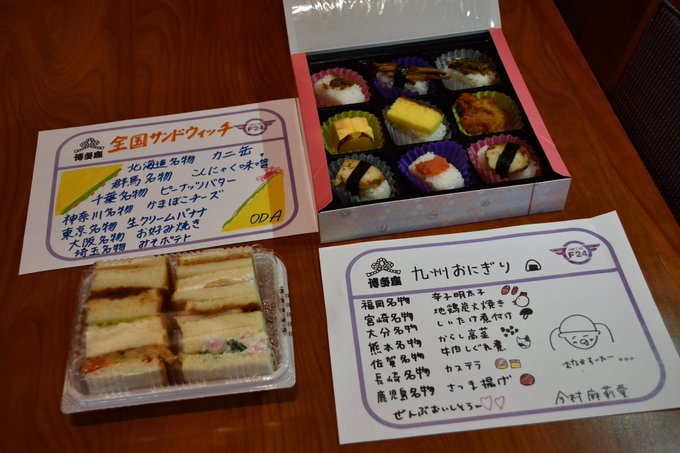 博多座
全国サンドウィッチ
F24
北海道名物 カニ缶
群馬名物 こんにゃく味噌
千葉名物 ピーナッツバター
神奈川名物 かまぼこチーズ
東京名物 生クリームバナナ
大阪名物 お好み焼き
埼玉名物 みそポテト
ODA
博多座
九州おにぎり
F24
福岡名物 辛子明太子
宮崎名物 地鶏炭火焼き
大分名物 しいたけ煮付け
熊本名物 からし高菜
佐賀名物 牛肉しぐれ煮
長崎名物 カステラ
鹿児島名物 さつま揚げ
ぜんぶおいしそう〜♡♡
今村麻莉愛